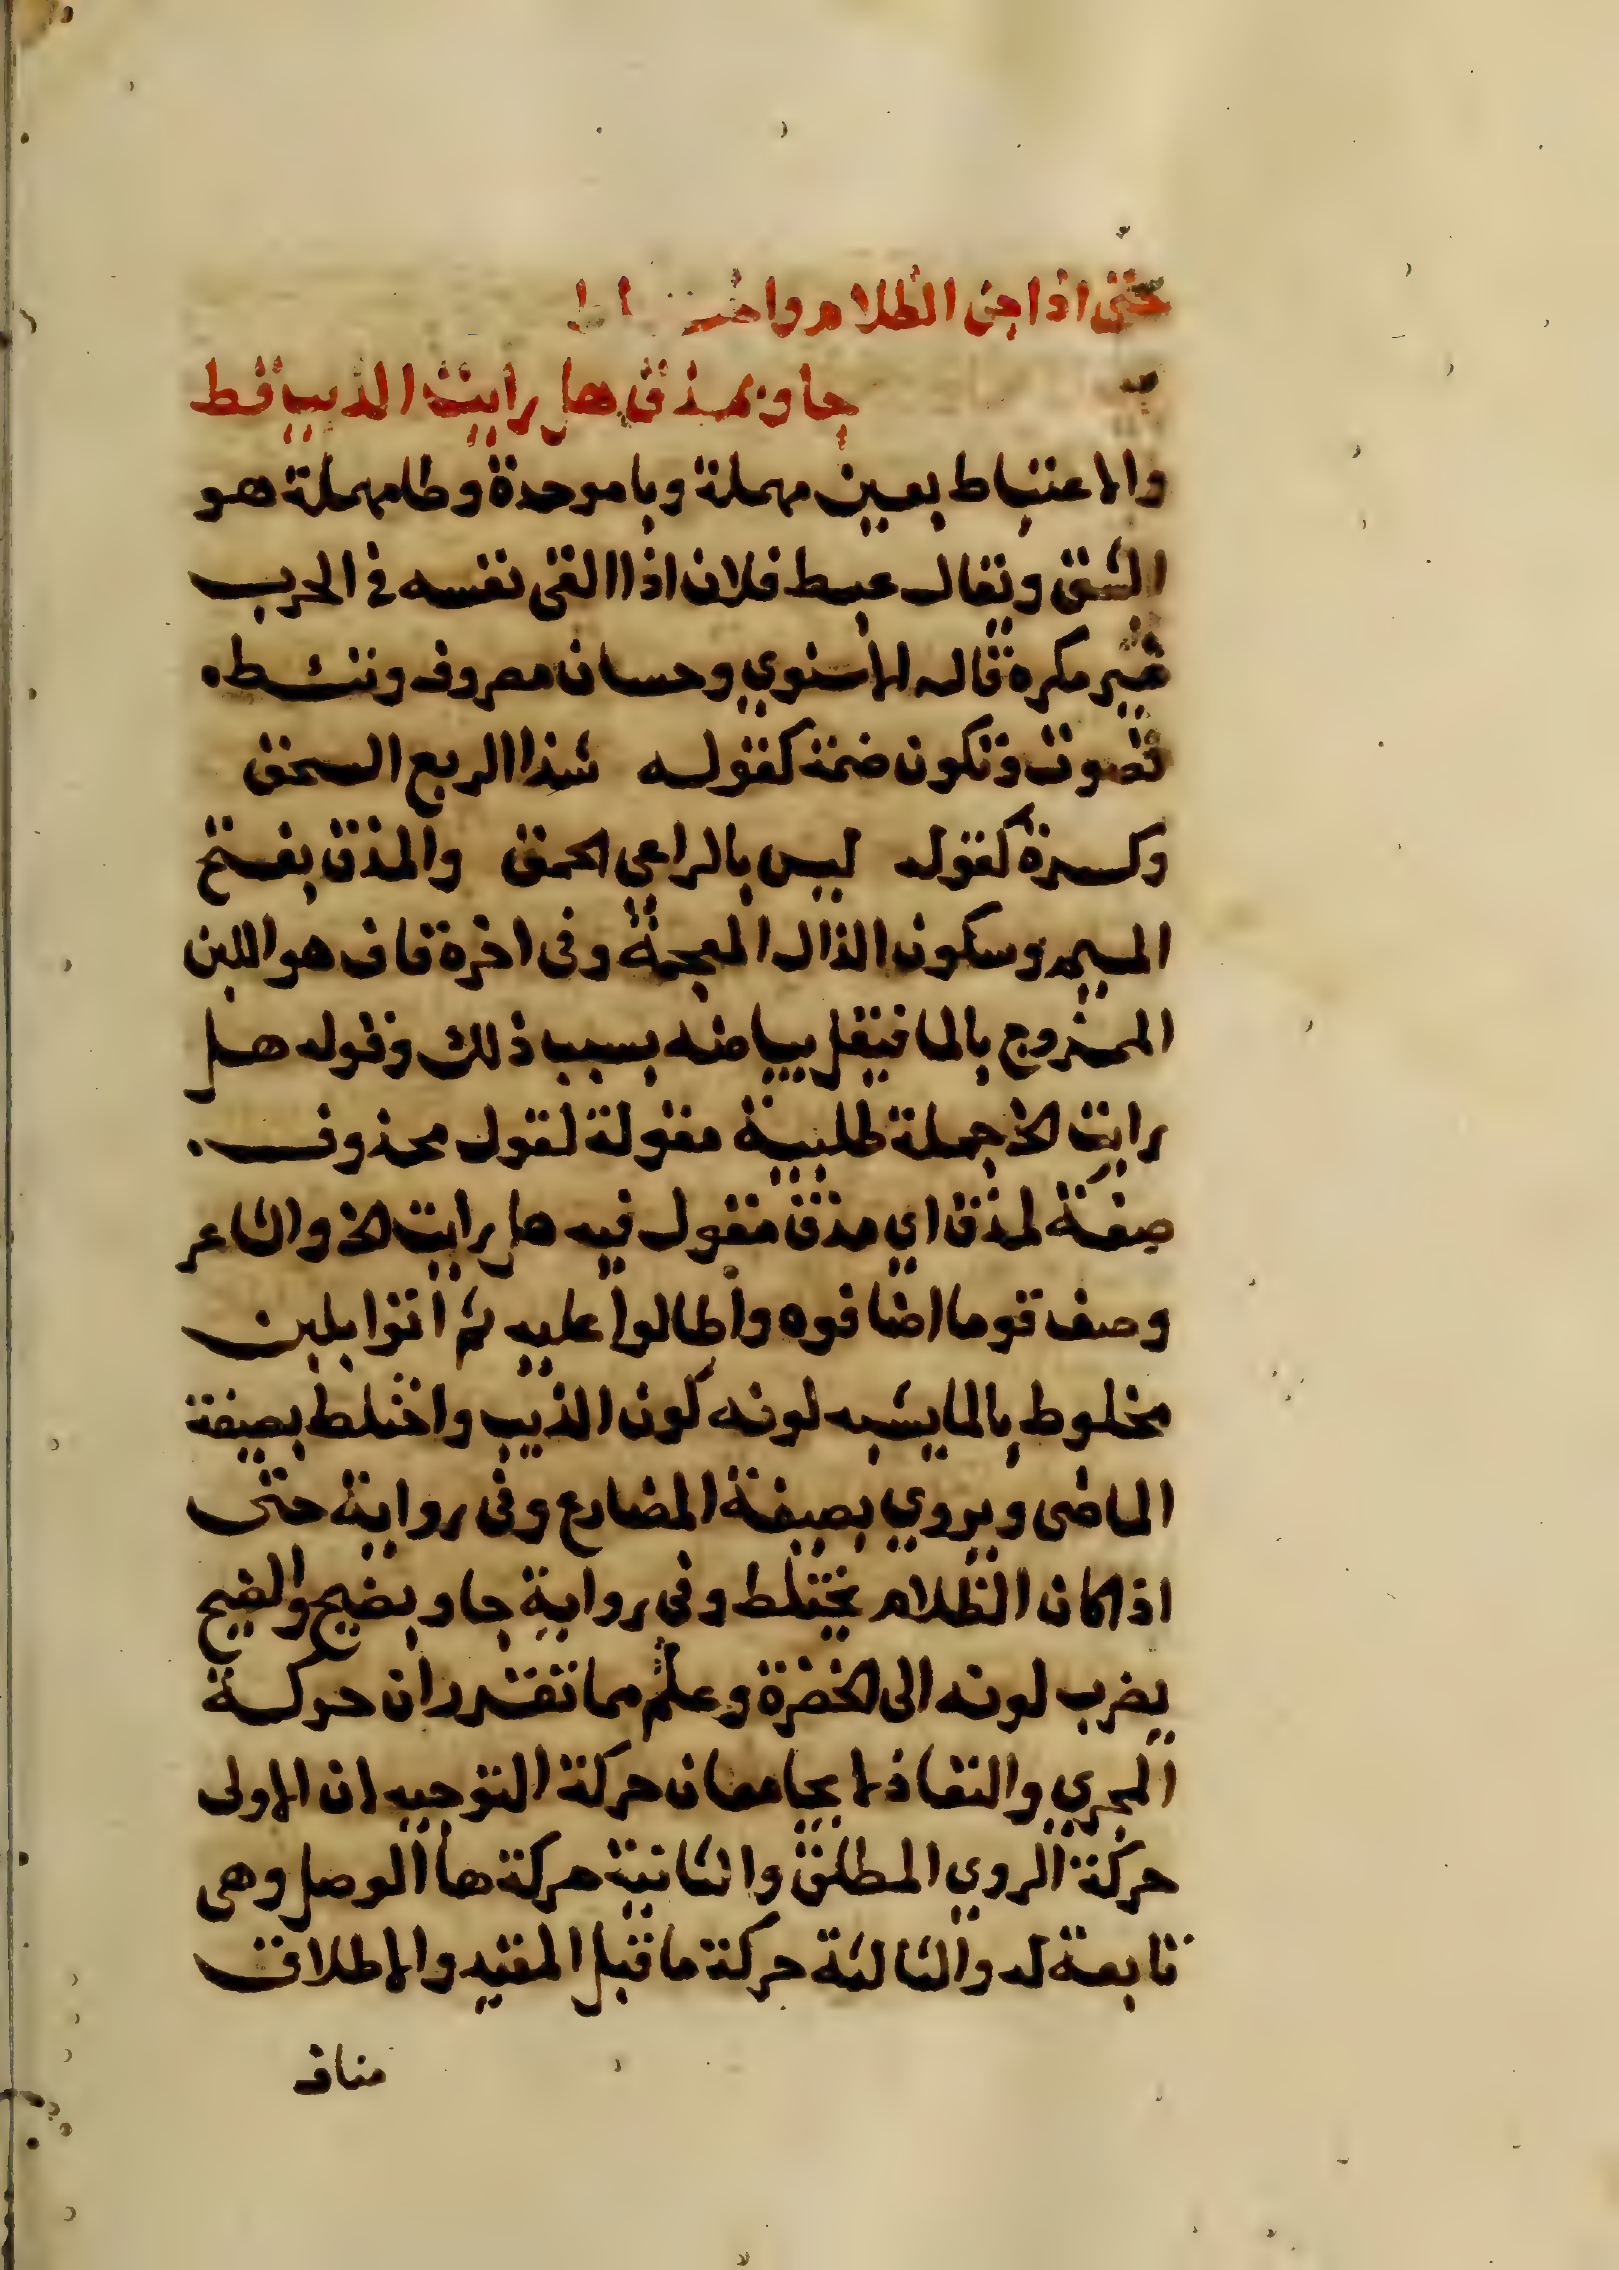 حتى اذا جن الظلام واختلط
جاو بمذق هل رايت الذيب قط
والاعتباط بعين مهملة وبا موحدة وطا مهملة هو
الشق ويقال عبط فلان اذا القى نفسه في الحرب
غير مكره قاله الاسنوي وحسان معروف وتئط
تصوت وتكون ضمة كقوله شذا الربع السحق
وكسرة كقوله ليس بالراعي الحمق والمذق بفتح
الميم وسكون الذال المعجمة وفى اخره قاف هو اللبن
الممزوج بالما فيقل بياضه بسبب ذلك وقوله هل
رايت الخ جملة طلبية مقولة لقول محذوف
صفة لمذق اي مذق مقول فيه هل رايت الخ والشاعر
وصف قوما اضافوه واطالوا عليه ثم اتوا بلبن
مخلوط بالما يشبه لونه كون الذيب واختلط بصيغة
الماضى ويروي بصيغة المضارع وفى رواية حتى
اذا كان الظلام يختلط وفى رواية جاو بضيح والضيح
يضرب لونه الى الخضرة وعلم مما تقرر ان حركة
المجري والنفاذ لا يجامعان حركة التوجيه لان الاولى
حركة الروي المطلق والثانية حركة ها الوصل وهى
تابعة له والثالثة حركة ما قبل المقيد والاطلاق
مناف